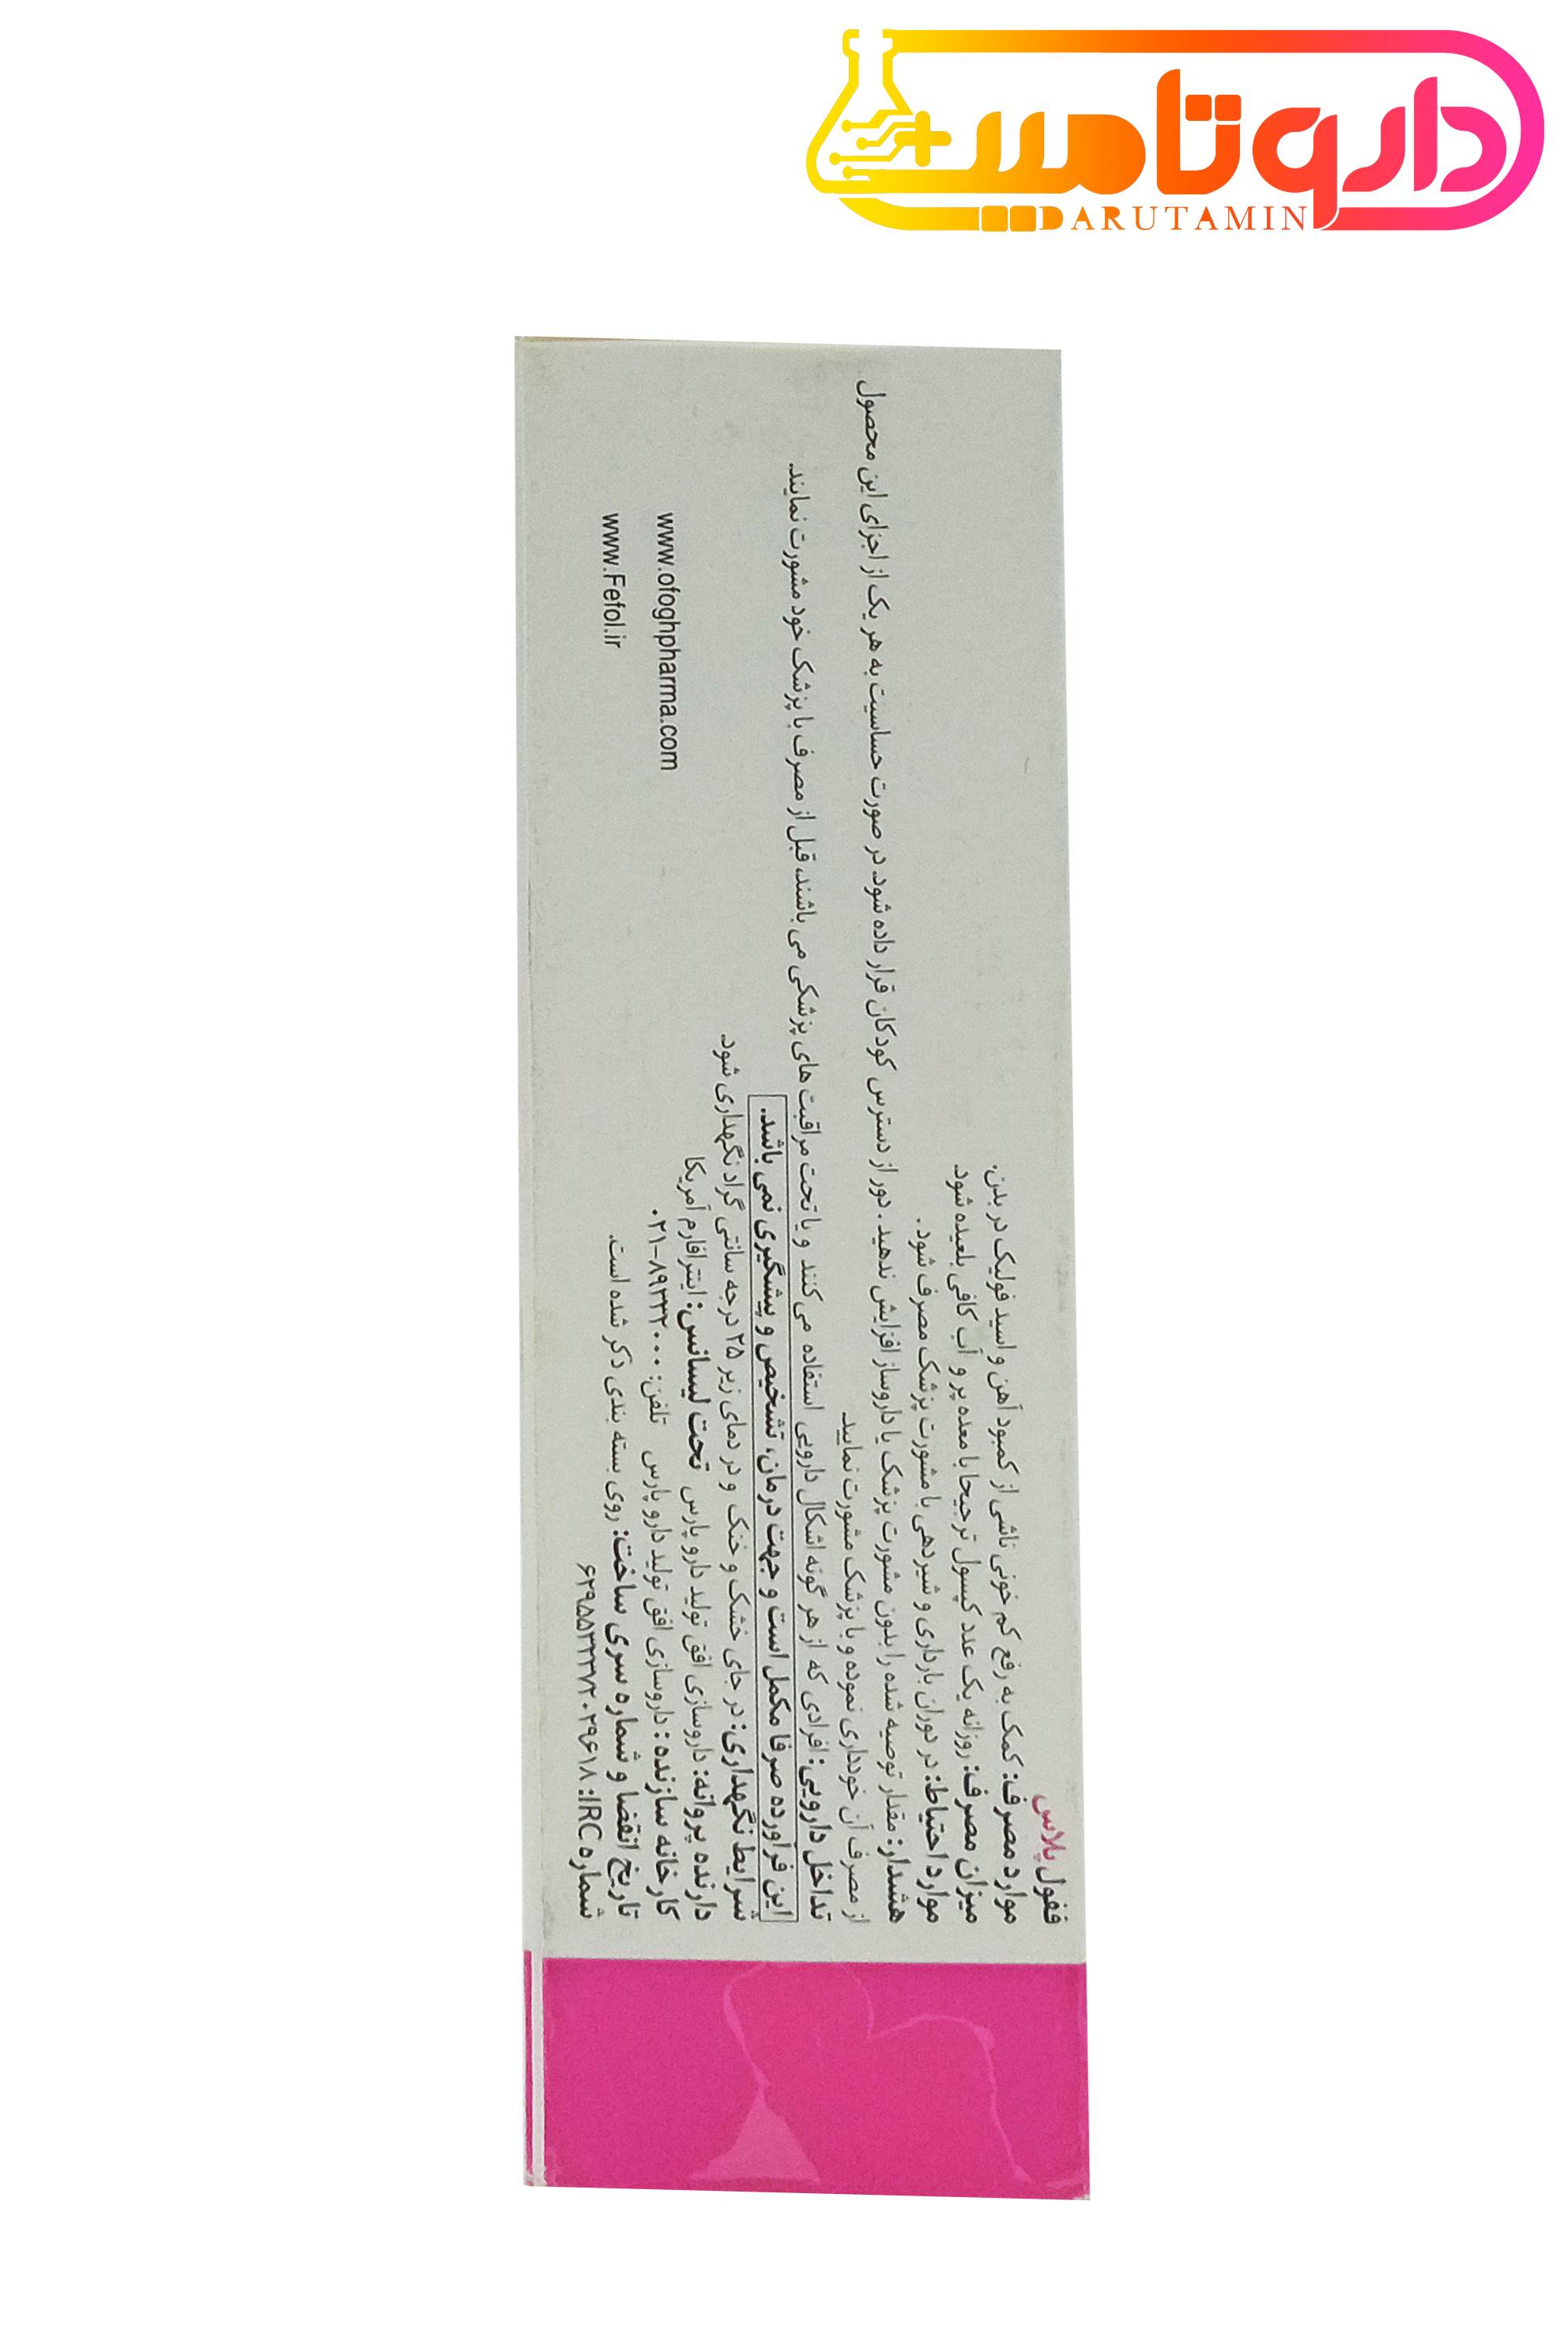 داروتامین
DARUTAMIN
ففول پلاس
موارد مصرف: کمک به رفع کم خونی ناشی از کمبود آهن و اسید فولیک در بدن.
میزان مصرف: روزانه یک عدد کپسول ترجیحا با معده پر و آب کافی بلعیده شود
موارد احتیاط: در دوران بارداری و شیردهی با مشورت پزشک مصرف شود .
هشدار: مقدار توصیه شده را بدون مشورت پزشک یا داروساز افزایش ندهید . دور از دسترس کودکان قرار داده شود. در صورت حساسیت به هر یک از اجزای این محصول
از مصرف آن خودداری نموده و با پزشک مشورت نمایید.
تداخل دارویی: افرادی که از هر گونه اشکال دارویی استفاده می کنند و یا تحت مراقبت های پزشکی می باشند، قبل از مصرف با پزشک خود مشورت نمایند.
این فرآورده صرفا مکمل است و جهت درمان، تشخیص و پیشگیری نمی باشد.
شرایط نگهداری: در جای خشک و خنک و در دمای زیر ۲۵ درجه سانتی گراد نگهداری شود.
دارنده پروانه: داروسازی افق تولید دارو پارس تحت لیسانس: اینترافارم آمریکا
کارخانه سازنده : داروسازی افق تولید دارو پارس تلفن: ۸۹۳۳۲۰۰۰-۰۲۱
www.ofoghpharma.com
تاریخ انقضا و شماره سری ساخت: روی بسته بندی ذکر شده است.
www.Fefol.ir
شماره IRC: ۶۲۹۵۵۳۳۷۲۰۲۹۶۱۸